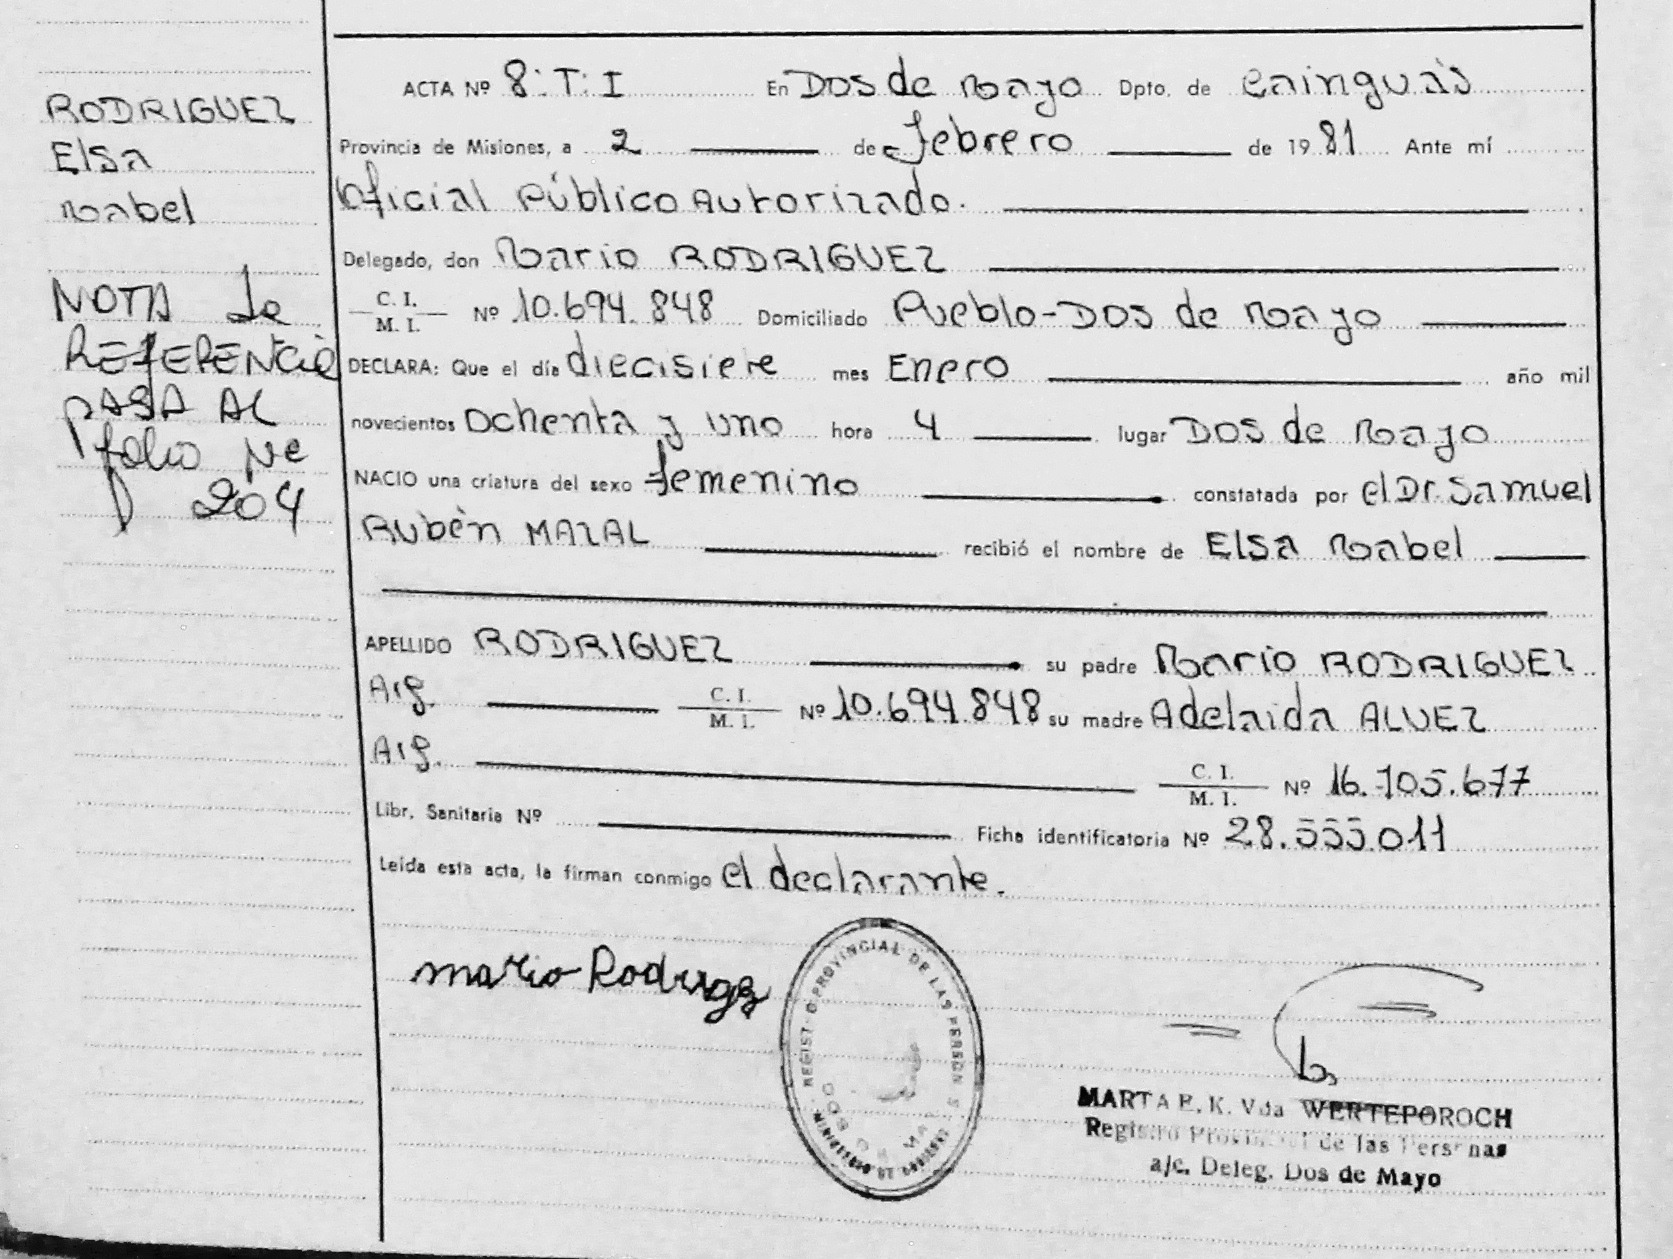 RODRIGUEZ
Elsa
Mabel
NOTA de
REFERENCIA
PASA AL
folio Nº
204
ACTA Nº 8:T:I En Dos de Mayo Dpto. de Cainguás
Provincia de Misiones, a 2 de febrero de 1981 Ante mí
Oficial Público Autorizado.
Delegado, don Mario RODRIGUEZ
C. I.
M. I. Nº 10.694.848 Domiciliado Pueblo-Dos de Mayo
DECLARA: Que el día diecisiete mes Enero año mil
novecientos Ochenta y uno hora 4 lugar Dos de Mayo
NACIO una criatura del sexo femenino constatada por el Dr. Samuel
Rubén MAZAL recibió el nombre de Elsa Mabel
APELLIDO RODRIGUEZ su padre Mario RODRIGUEZ
Arg. C. I.
M. I. Nº 10.694.848 su madre Adelaida ALVEZ
Arg. C. I.
M. I. Nº 16.705.677
Libr. Sanitaria Nº Ficha identificatoria Nº 28.555.011
Leída esta acta, la firman conmigo el declarante.
mario Rodrigez
REGISTRO PROVINCIAL DE LAS PERSONAS
MINISTERIO DE GOBIERNO
MARTA E. K. Vda WERTEPOROCH
Registro Provincial de las Personas
a/c. Deleg. Dos de Mayo